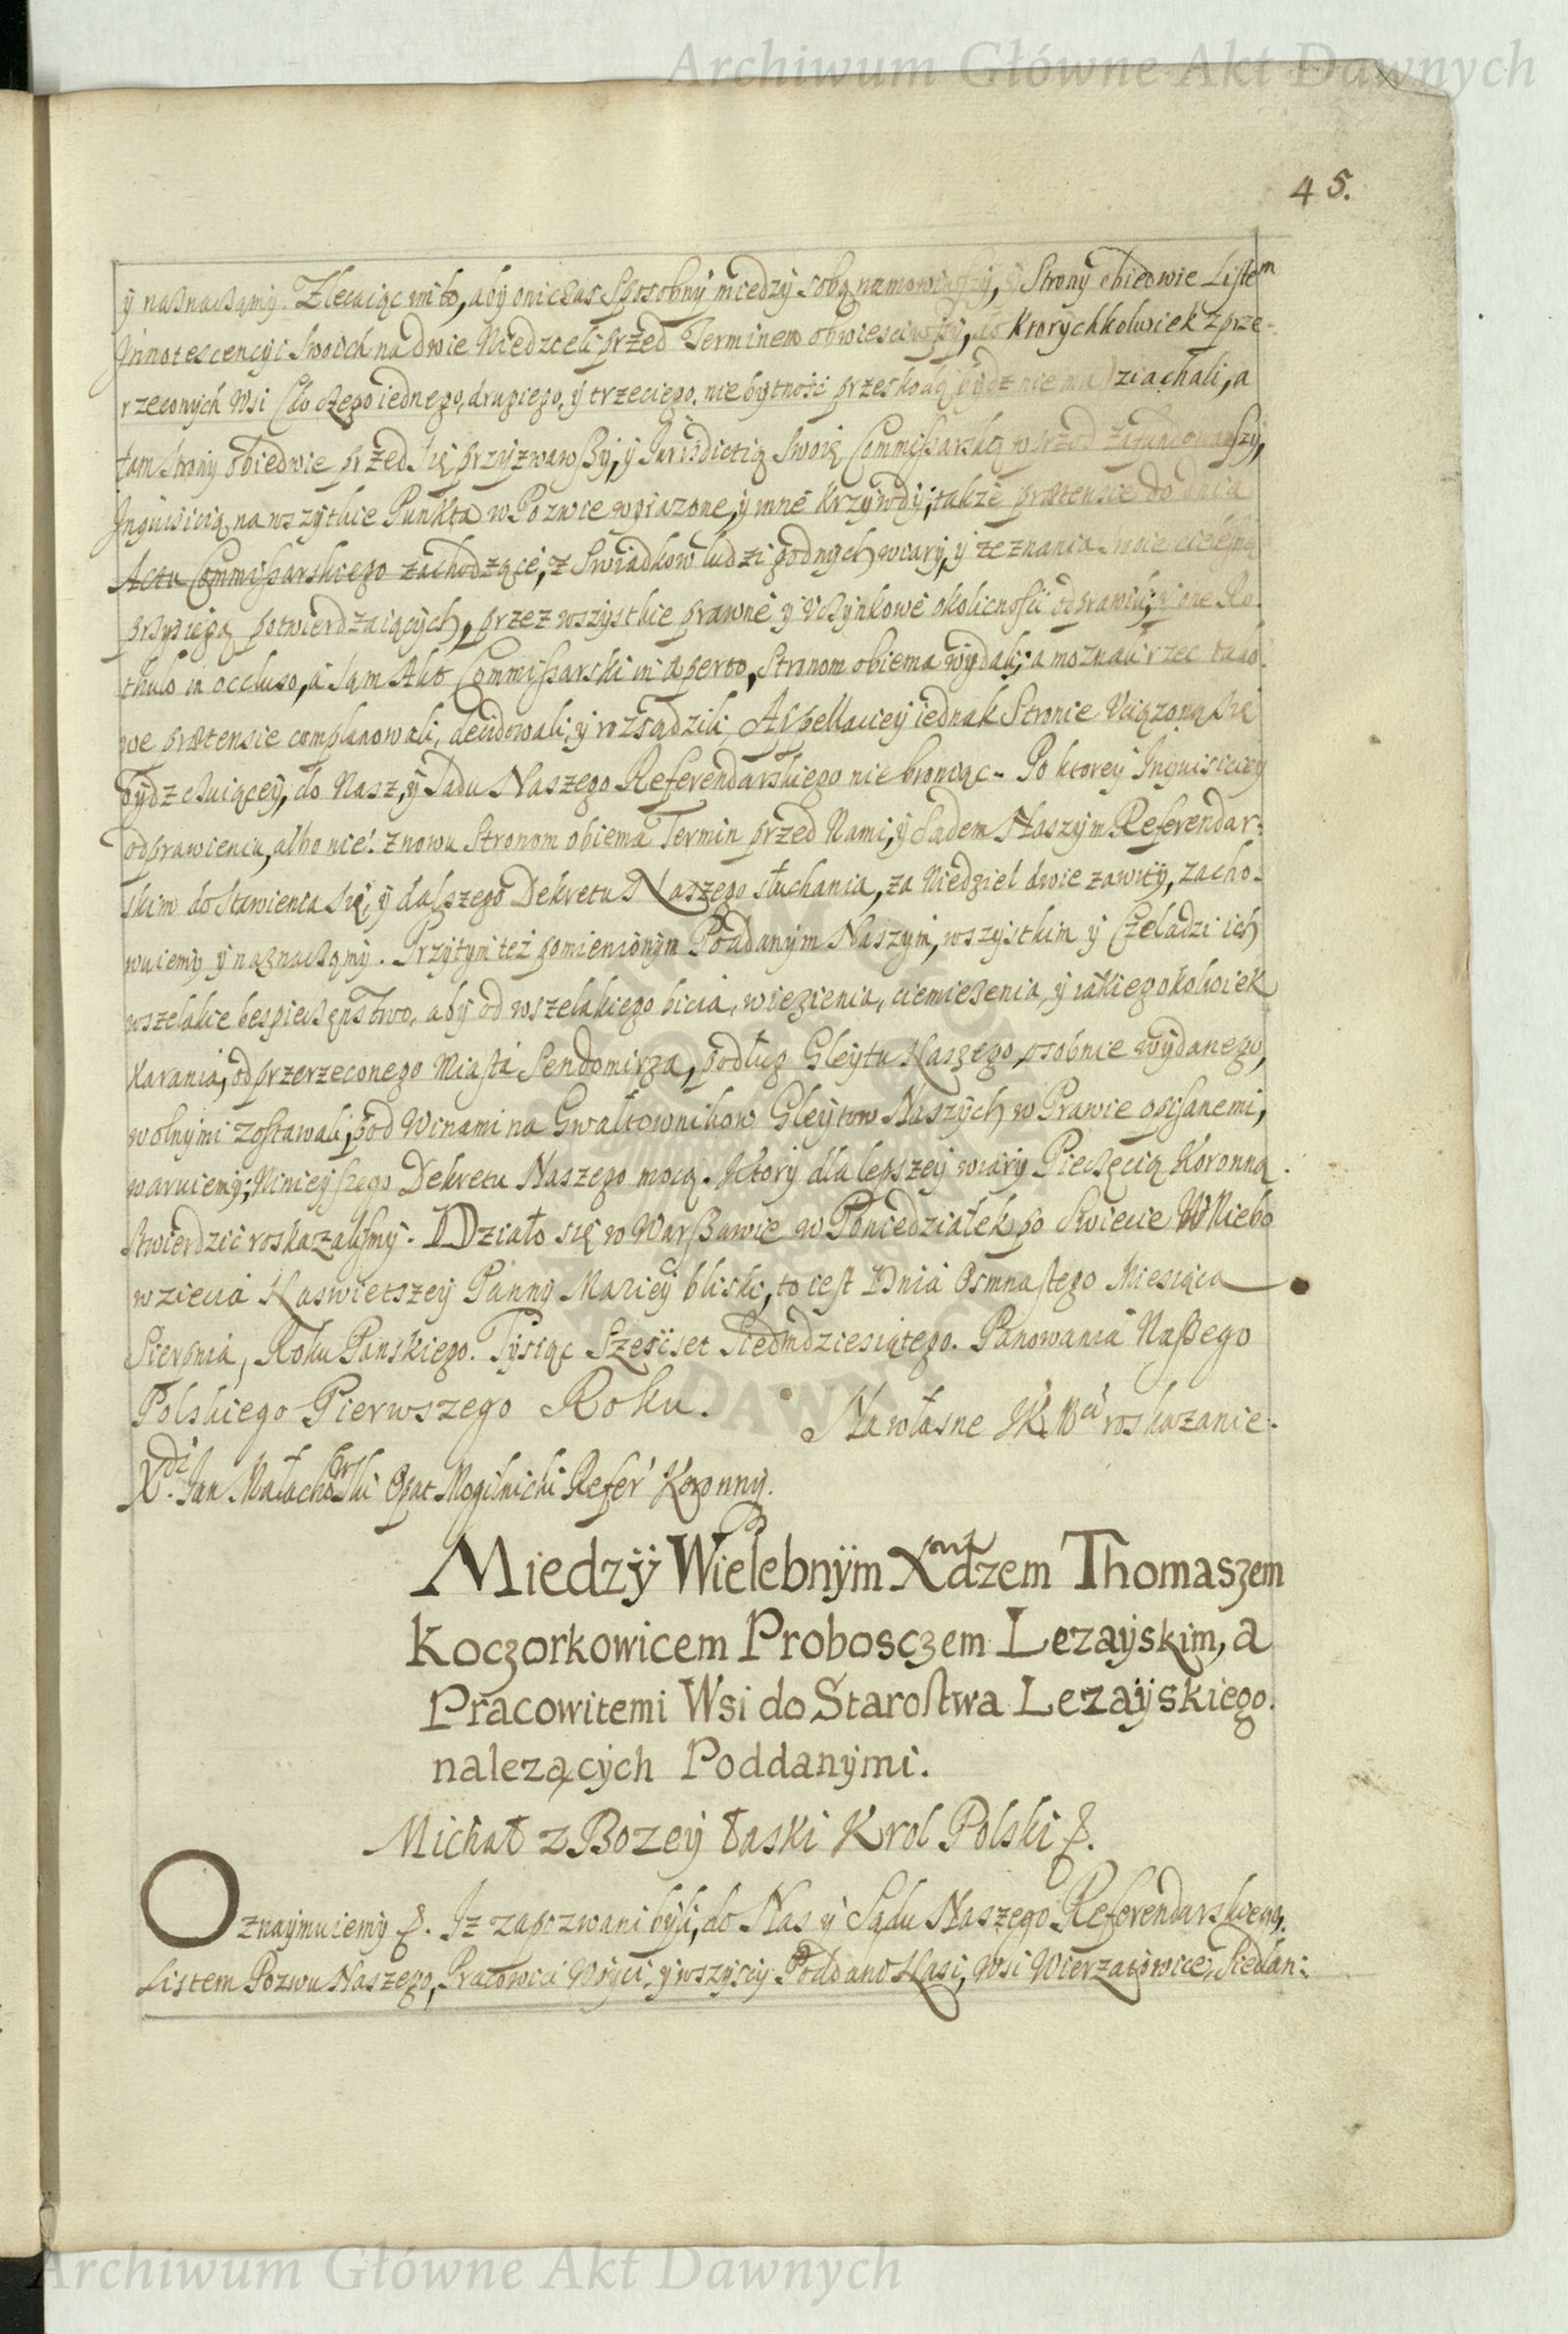 Archiwum Główne Akt Dawnych
45.
ÿ naßnaßąmÿ. Zlecaiąc im to, abÿ oni cżas sposobnÿ miedzÿ sobą namowiwszÿ, ÿ Stronÿ obiedwie Listem
Innotescencÿi Swoich na dwie Niedzieli przed Terminem obwiesciwszÿ, do ktorÿchkolwiek z prze-
rzeconÿch Wsi (do cżego iednego, drugiego, ÿ trzeciego. niebÿtność przeskodą bÿdz nie ma) ziachali, a
tam Stronÿ obiedwie przed się przÿzwawßÿ, ÿ Jurisdictią Swoię Commissarską wprzod zafundowawszÿ,
Inquisicią na wszÿtkie Punkta w Pozwie wÿrazone, ÿ inne krzÿwdÿ, także prætensie do
Actu Commissarskiego zachodzące, z Swiadkow ludzi godnÿch wiarÿ, ÿ zeznania swoie cielesną
przÿsięgą potwierdzaiącÿch, przez wszÿstkie prawne ÿ Vcżÿnkowe okolicnosci odprawili, ÿ one Ro-
thulo in occluso, a sąm Akt Commissarski in aperto, Stronom obiema wÿdali; a moznali rzec takó-
we prætensie complanowali, decidowali, ÿ rozsądzili, Appellacieÿ iednak Stronie Vciążoną się
bÿdz cżuiąceÿ, do Nasz, ÿ Sadu Naszego Referendarskiego nie broniąc. Po ktoreÿ Inquisicieÿ
odprawieniu, albo nie: znowu Stronom obiema Termin przed Nami, ÿ Sadem Naszÿm Referendar-
skim do stawienia się, ÿ dalszego Dekretu Naszego słuchania, za Niedziel dwie zawitÿ, zacho-
wuiemÿ ÿ naznacżąmÿ. Przÿtÿm też pomienionÿm Poddanÿm Naszÿm, wszÿstkim ÿ Cżeladzi ich
wszelakie bespiecżęnstwo, abÿ od wszelakiego bicia, wiezienia, ciemiężenia, ÿ iakiegokolwiek
karania, od przerzeconego Miasta Sendomirza, podług Gleÿtu Naszego, osobnie wÿdanego,
wolnÿmi zostawali, pod Winami na Gwałtownikow Gleÿtow Naszÿch w Prawie opisanemi,
waruiemÿ; Ninieÿszego Dekretu Naszego mocą. Ktorÿ dla lepszeÿ wiarÿ Piecżęcią Koronną
stwierdzić roskazalismÿ. Działo się w Warßawie w Poniedziałek po Swiecie W Niebo
wziecia Naswietszeÿ Pannÿ Marieÿ blisko, to iest Dnia Osmnastego Miesiąca
Sierpnia, Roku Panskiego. Tÿsiąc Szescset Siedmdziesiątego. Panowania Naßego
Polskiego Pierwszego Roku. Na własne JKMci roskazanie.
Xdz. Jan Małachowski Opat Mogilnicki Refer Koronnÿ.
Miedzÿ Wielebnÿm Xiędzem Thomaszem
Koczorkowicem Proboszczem Lezaÿskim, a
Pracowitemi Wsi do Starostwa Lezaÿskiego.
nalezącÿch Poddanÿmi.
Michał z Bozeÿ Łaski Krol Polski &.
Oznaÿmuiemÿ &. Iz zapozwani bÿli, do Nas ÿ Sądu Naszego Referendarskiego,
Listem Pozwu Naszego, Pracowici Woÿci, ÿ wszÿscÿ Poddani Nasi, Wsi Wierzawice, Siedlan-
Archiwum Główne Akt Dawnych